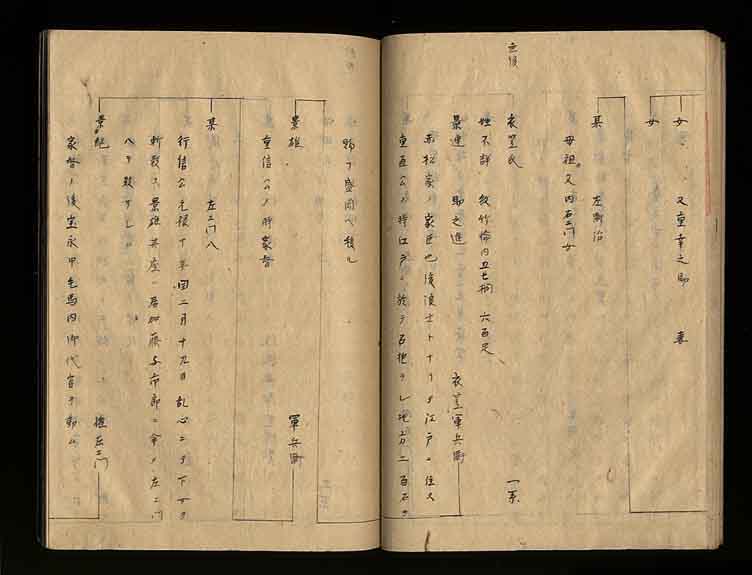 女 又重幸之助 妻
女
某 左衛治
母祖父内右エ門女
衣笠氏 一系
姓不詳 紋竹輪内五七桐 六百石
景連 助之進 衣笠軍兵衛
赤松家ノ家臣也後浪士トナリテ江戸ニ住ス
重直公ノ時江戸ニ於テ召抱ラレ地方二百石ヲ
賜フ盛岡ヘ移ル
景雄 軍兵衛
重信公ノ時家督
某 左エ門八
行信公元禄十年 二月十九日乱心ニテ下女ヲ
斬殺ス景雄其座ニ居加藤与市郎ニ命ノ左エ門
八ヲ殺サしム
景 権左エ門
家督ノ後宝永中毛馬内御代官ヲ勤ム